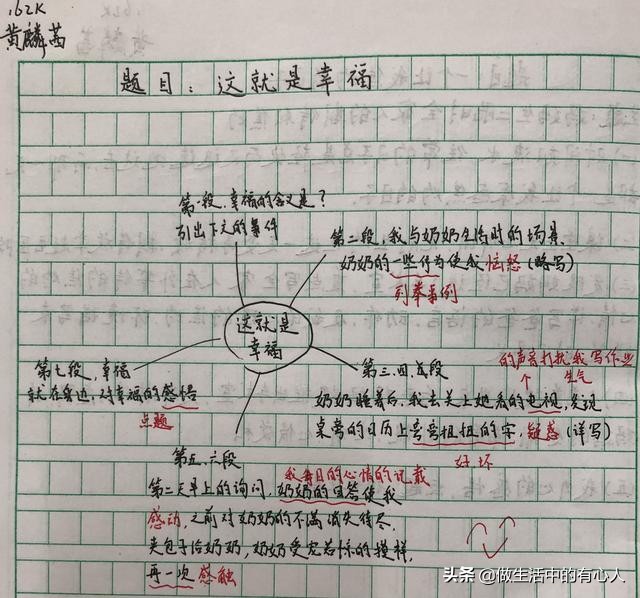 162K
黄麟茜
题目：这就是幸福
第一段，幸福的含义是？
引出下文的事件
第二段，我与奶奶生活时的场景，
奶奶的一些行为使我恼怒（略写）
列举事例
这就是
幸福
第三、四段
的声音打扰我写作业
生气
奶奶睡着后，我去关上她看的电视，发现
桌旁的日历上弯弯扭扭的字，疑惑（详写）
好坏
第七段，幸福
就在身边，对幸福的感悟
点题
第五、六段
我每日的心情的记载
第二天早上的询问，奶奶的回答使我
感动，之前对奶奶的不满消失待尽，
夹包子给奶奶，奶奶受宠若惊的模样，
再一次感触
头条 @做生活中的有心人